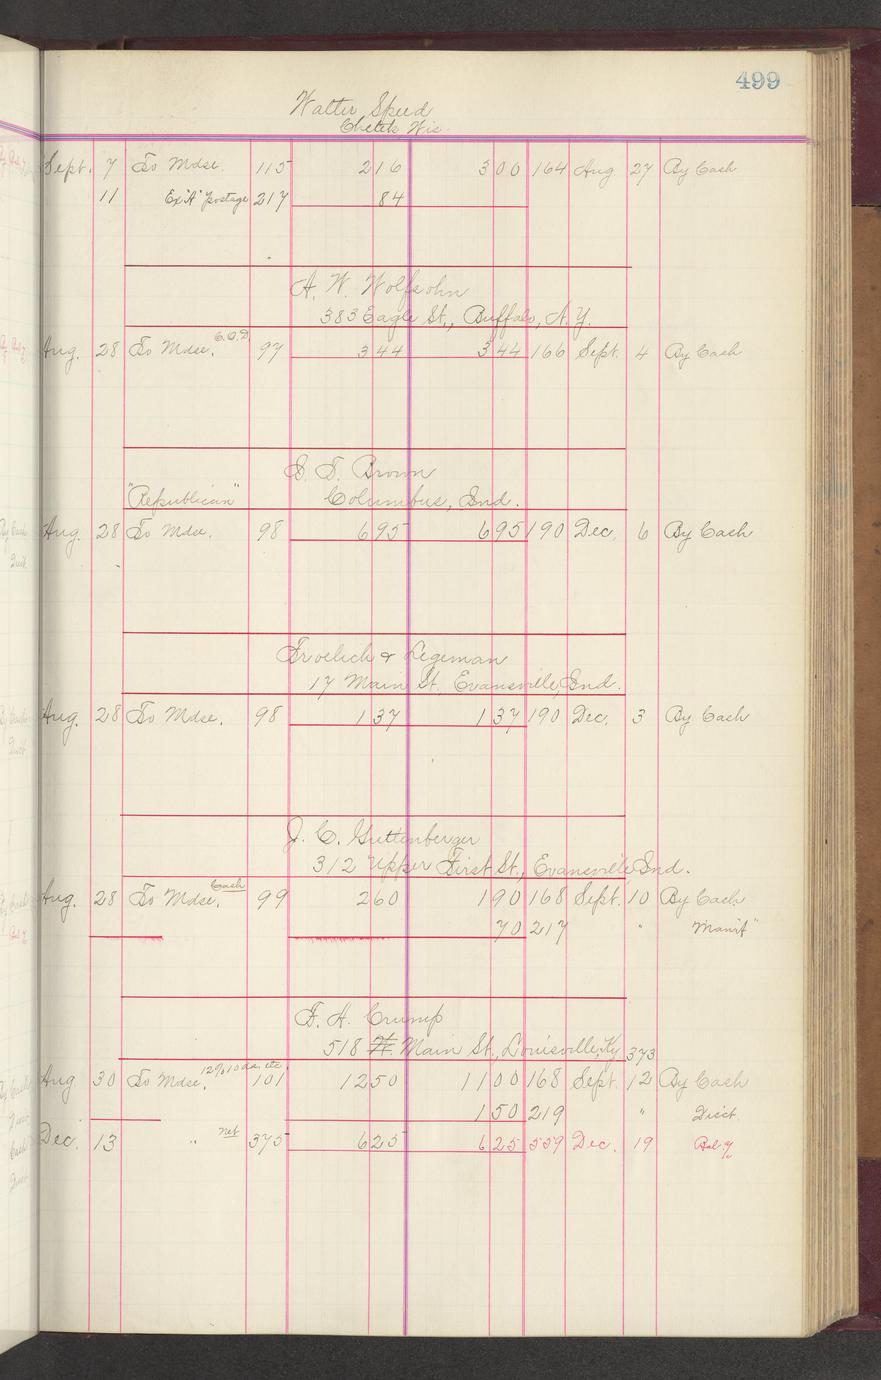 499
Walter Speed
Chetek Wis.
Sept. 7 To Mdse. 115 216 300 164 Aug 27 By Cash
11 Ex "A" Postage 217 84
A. W. Wolfsohn
383 Eagle St., Buffalo, N.Y.
Aug. 28 To Mdse. C.O.D. 97 344 344 166 Sept. 4 By Cash
S. T. Brown
"Republican" Columbus, Ind.
Aug. 28 To Mdse. 98 695 695 190 Dec. 6 By Cash
Froelich & Legeman
17 Main St. Evansville, Ind.
Aug. 28 To Mdse. 98 137 137 190 Dec. 3 By Cash
J. C. Guttenberger
312 Upper First St., Evansville Ind.
Aug. 28 To Mdse. Cash 99 260 190 168 Sept. 10 By Cash
70 217 "
F. H. Crump
518 W. Main St., Louisville, Ky 373
Aug 30 To Mdse. 12% 10 da. etc. 101 1250 1100 168 Sept. 12 By Cash
150 219 " Disct.
Dec. 13 " net 375 625 625 559 Dec. 19